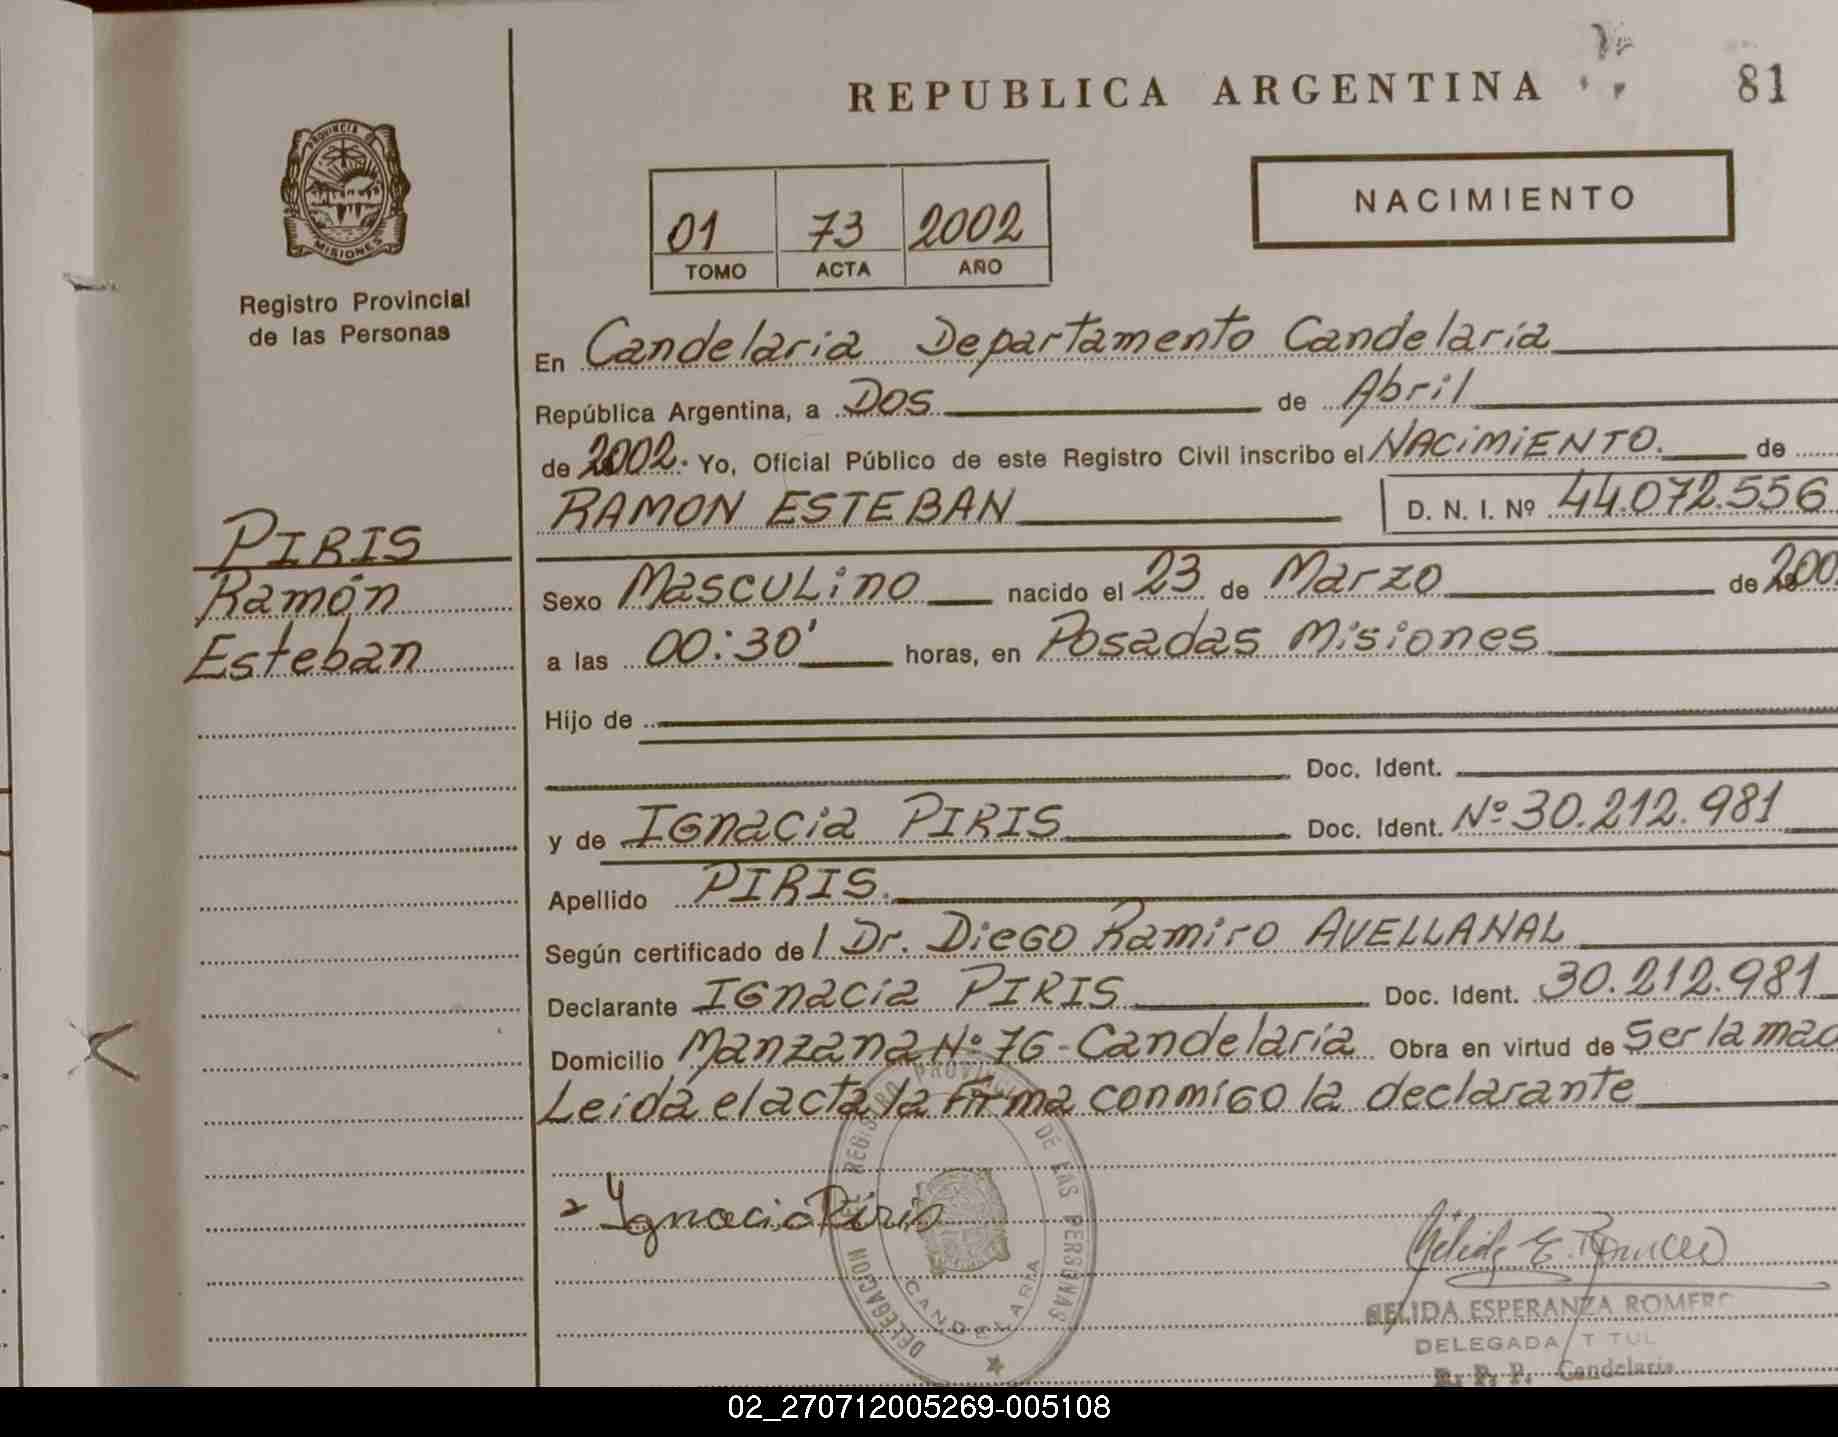 REPUBLICA ARGENTINA
81
PROVINCIA DE
MISIONES
Registro Provincial
de las Personas
NACIMIENTO
01 73 2002
TOMO ACTA AÑO
En Candelaria Departamento Candelaria
República Argentina, a Dos de Abril
de 2002. Yo, Oficial Público de este Registro Civil inscribo el NACIMIENTO. de
RAMON ESTEBAN D. N. I. Nº 44.072.556
PIRIS
Ramón
Esteban
Sexo Masculino nacido el 23 de Marzo de 200
a las 00:30' horas, en Posadas Misiones
Hijo de
Doc. Ident.
y de Ignacia PIRIS Doc. Ident. Nº 30.212.981
Apellido PIRIS.
Según certificado de l Dr. Diego Ramiro AVELLANAL
Declarante Ignacia PIRIS Doc. Ident. 30.212.981
Domicilio Manzana Nº 76 - Candelaria Obra en virtud de Ser la mad
Leida el acta la firma conmigo la declarante
Ignacia Piris
REGISTRO PROVINCIAL DE LAS PERSONAS
DELEGACION
CANDELARIA
Nélida E. Romero
NELIDA ESPERANZA ROMERO
DELEGADA TITUL
R. P. P. Candelaria
02_270712005269-005108